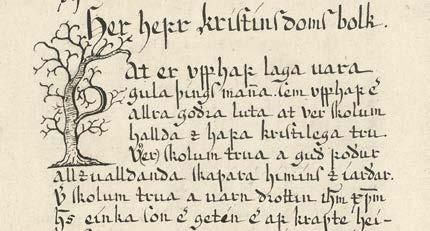 Her hefr kristins doms bolk.
Þat er vpphaf laga vara
gula þings manna. sem vpphaf e᷎
allra godra luta at ver skolum
hallda ⁊ hafa kristilega tru.
Ver skolum trua a gud fodur
all⁊ualldanda skapara himins ⁊ iardar.
skolum trua a varn drottin ihm xpm
hs einka son e᷎ getēn e᷎ af krapte hei-